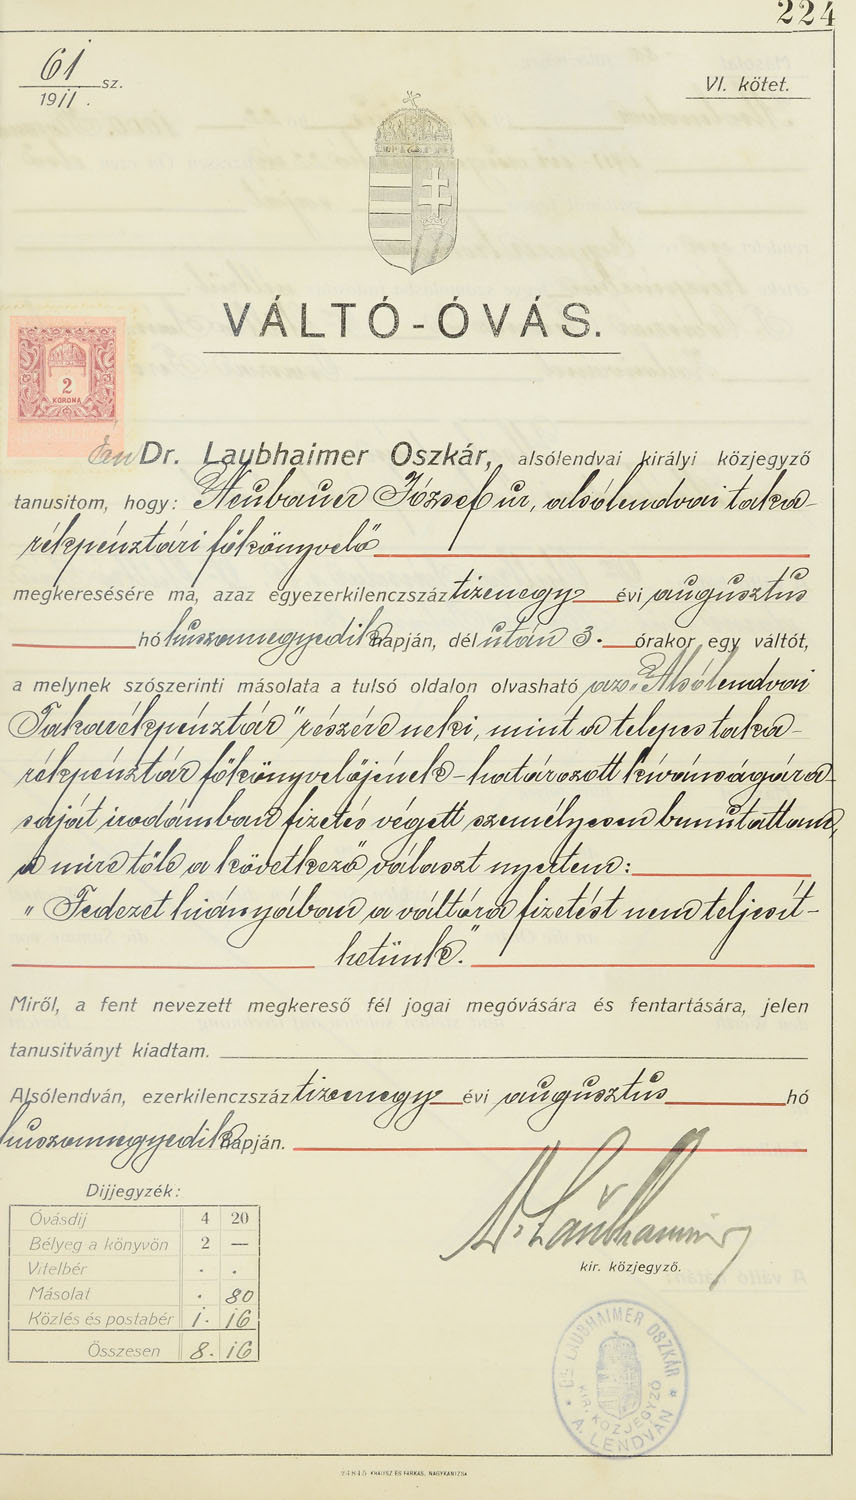 224
61 sz.
1911.
VI. kötet.
VÁLTÓ-ÓVÁS.
2
KORONA
Én Dr. Laubhaimer Oszkár, alsólendvai királyi közjegyző
tanusitom, hogy: Neubauer József ur, alsólendvai taka-
rékpénztári főkönyvelő
megkeresésére ma, azaz egyezerkilenczszáz tizenegy évi augusztus
hó huszonnegyedik napján, dél után 3. órakor egy váltót,
a melynek szószerinti másolata a tulsó oldalon olvasható az „Alsólendvai
Takarékpénztár" részére neki, mint a telepes taka-
rékpénztár főkönyvelőjének – határozott kívánságára
saját irodámban fizetés végett személyesen bemutattam,
a mire tőle a következő választ nyertem:
„Fedezet hiányában a váltóra fizetést nem teljesít-
hetünk."
Miről, a fent nevezett megkereső fél jogai megóvására és fentartására, jelen
tanusitványt kiadtam.
Alsólendván, ezerkilenczszáz tizenegy évi augusztus hó
huszonnegyedik napján.
Dr. Laubhaimer
kir. közjegyző.
Dijjegyzék:
Óvásdij 4 20
Bélyeg a könyvön 2 —
Vitelbér . .
Másolat . 80
Közlés és postabér 1. 16
Összesen 8. 16
DR. LAUBHAIMER OSZKÁR
KIR. KÖZJEGYZŐ
A. LENDVÁN
KRAUSZ ÉS FARKAS, NAGYKANIZSA